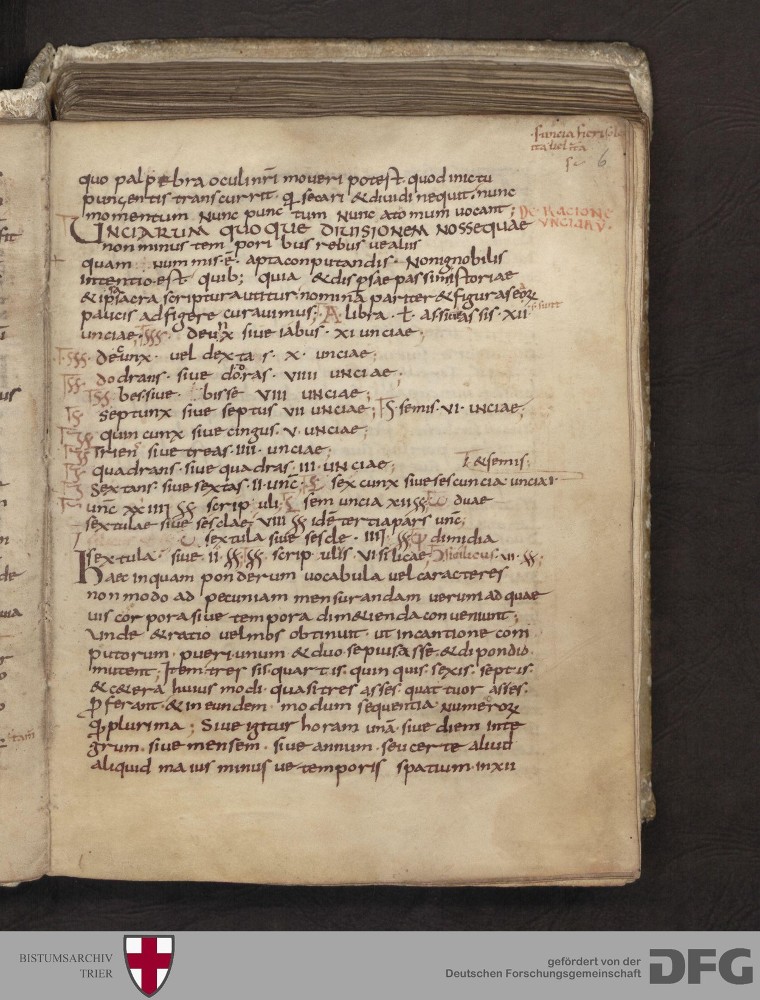 quo palpebra oculi nri moveri potest. quod in ictu
pungentis transcurrit. q secari & dividi nequit. nunc
momentum Nunc punctum Nunc atomum vocant;
DE RACIONE
VNCIARV.
UNCIARUM QUOQUE DIUISIONEM NOSSE quae
non minus temporibus rebus ve aliis
quam nummis .e. apta conputandis. Non ignobilis
intentio est quib; quia & dispsae passim istoriae
& ipsa sacra scriptura utitur nomina pariter & figuras eoꝝ
paucis adfigere curavimus; A libra. ł. as sive assis. XII
unciae; deunx sive iabus. XI unciae;
deunx. vel dexta s. X. unciae;
dodrans. sive doras. VIIII unciae;
bes sive bisse VIII unciae;
septunx sive septus VII unciae; semis. VI. unciae;
quincunx sive cingus. V. unciae;
Triens sive treas. IIII. unciae;
quadrans. sive quadras. III. unciae;
ł &semis;
Sextans. sive sextas. II. unc. sexcunx sive sescuncia uncia I
unc XXIIII scripuli; semuncia XII duae
sextulae sive sesclae; VIII idē tertia pars unc;
sextula sive sescle. IIII dimidia
sextula. sive. II. scripulis. VI silicae; Sicilicus. VI.
Haec inquam ponderum vocabula vel caracteres
non modo ad pecuniam mensurandam verum ad quae
vis corpora sive tempora dimetienda conveniunt;
unde & ratio vel mos obtinuit. ut in cantione com
putorum. pueri unum & duo sepius asse & dipondio
mutent; Item tres sis. quartis. quinquis. sexis. septis.
& cetera huius modi. quasi tres asses. quattuor asses.
pferant. & in eundem modum sequentia numeroꝝ
q plurima; Sive igitur horam unā. sive diem inte
grum. sive mensem. sive annum. seu certe aliud
aliquid maius minus ve temporis spatium in XII
6
BISTUMSARCHIV
TRIER
gefördert von der
Deutschen Forschungsgemeinschaft
DFG